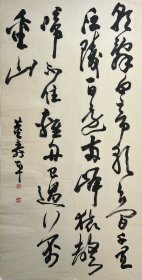 朝辞白帝彩云间千里
江陵一日还两岸猿声
啼不住轻舟已过万
重山
董寿平